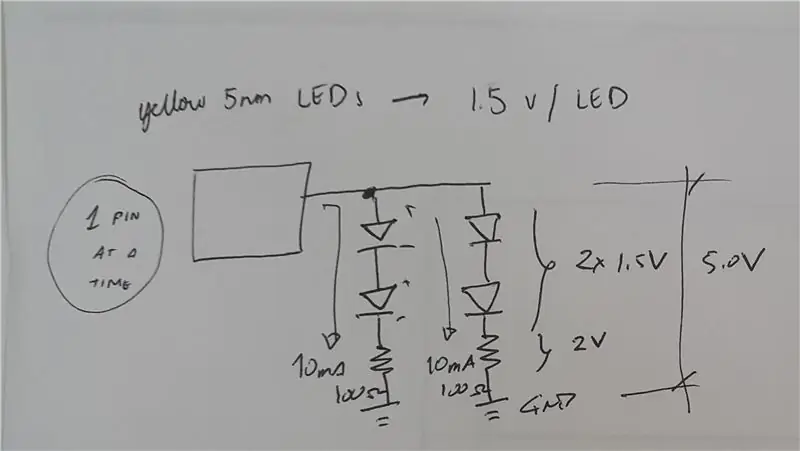 yellow 5mm LEDs → 1.5 V/LED
1 PIN
AT A
TIME
+
-
+
-
2x 1.5V
5.0V
2V
10mA
100Ω
10mA
100Ω
GND